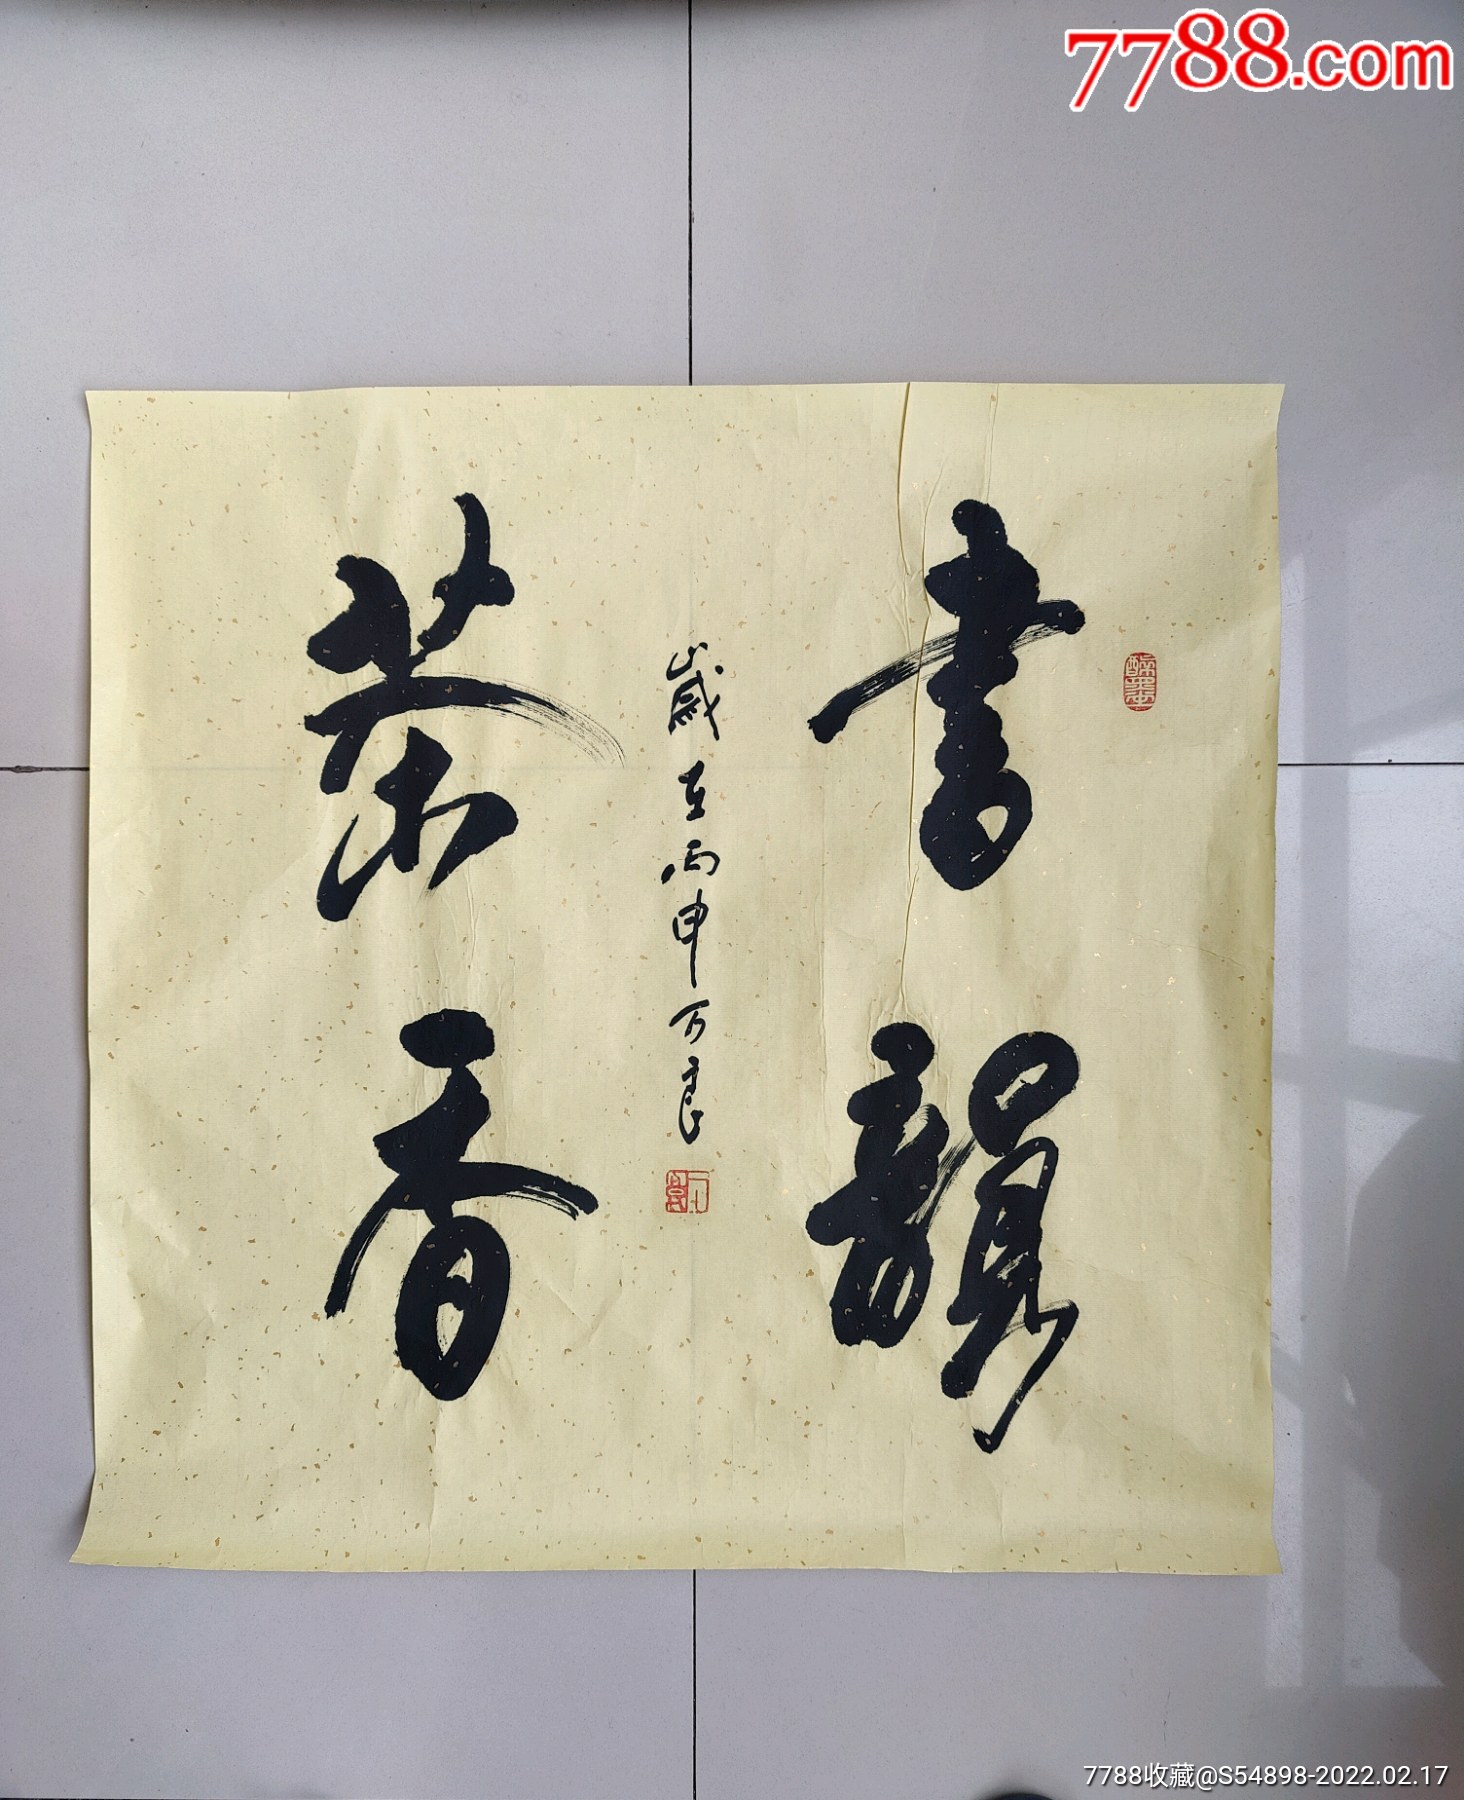 7788.com
書韻
歲在丙申万良
茶香
7788收藏@S54898-2022.02.17